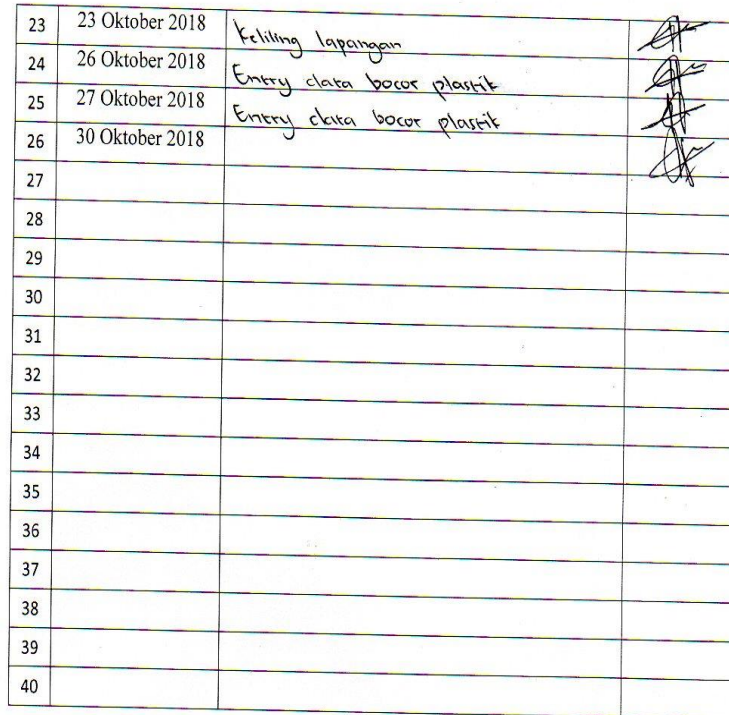 23 23 Oktober 2018 Keliling lapangan
24 26 Oktober 2018 Entry data bocor plastik
25 27 Oktober 2018 Entry data bocor plastik
26 30 Oktober 2018
27
28
29
30
31
32
33
34
35
36
37
38
39
40